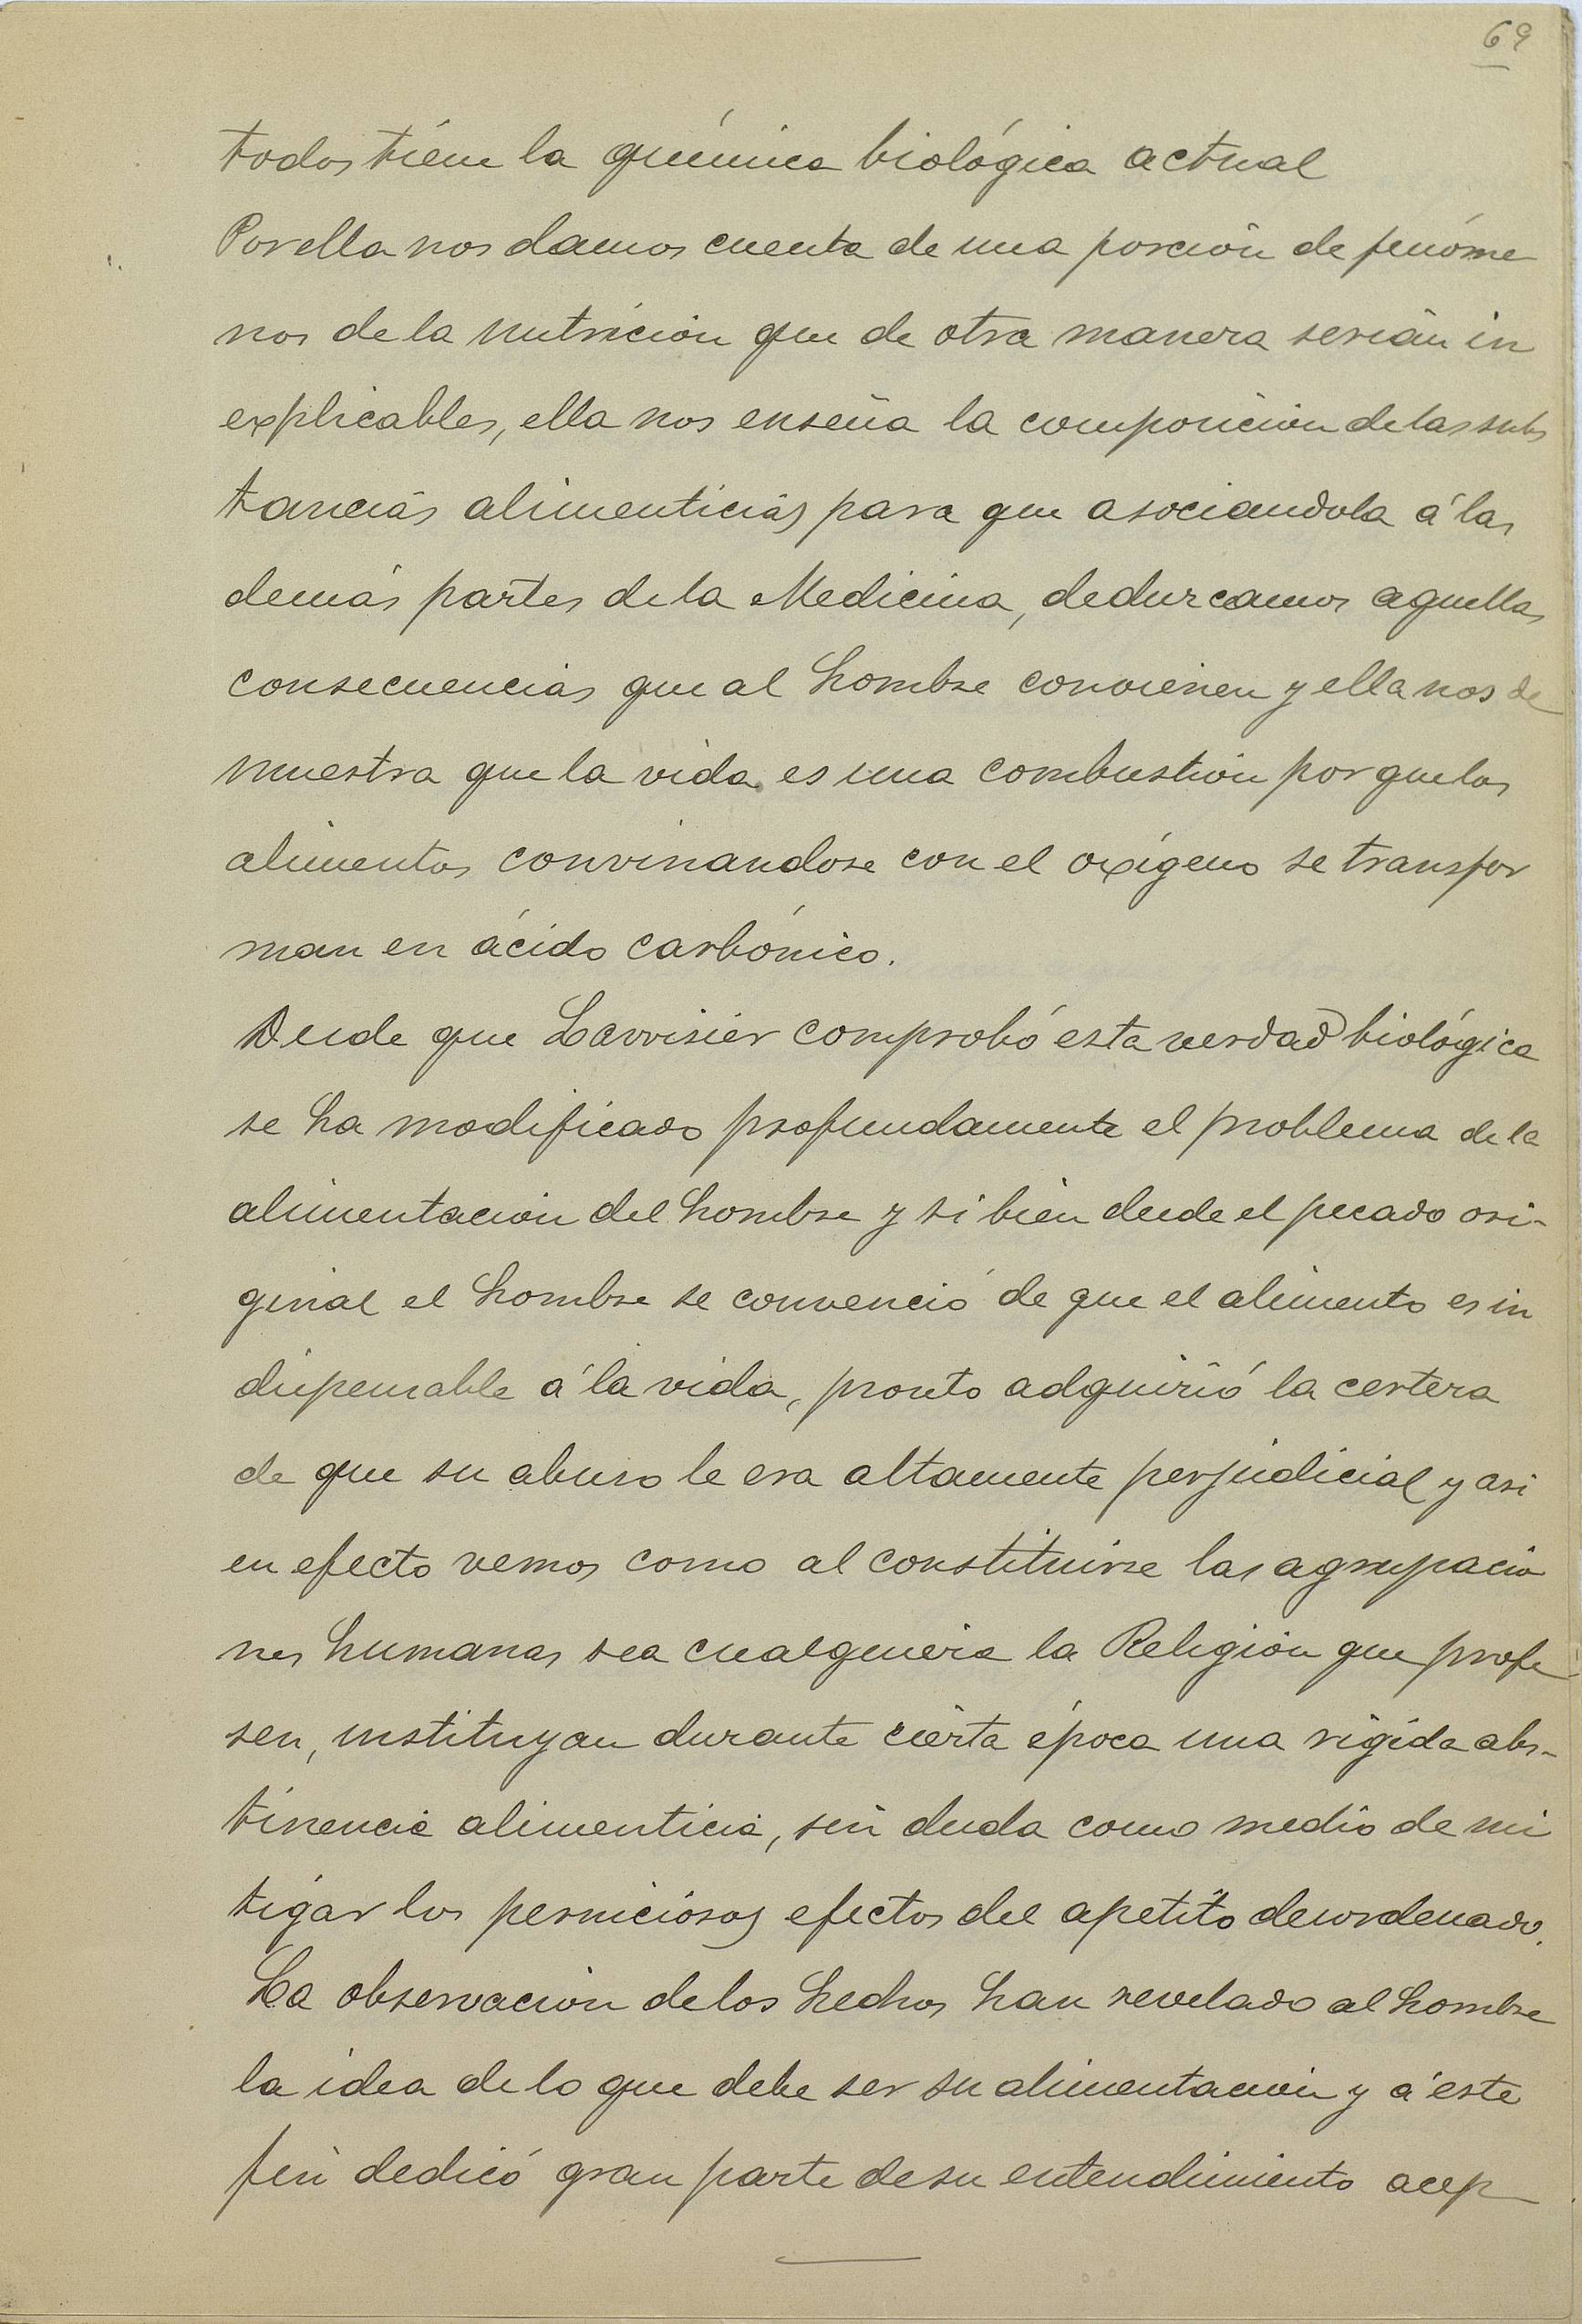 69
todos tiene la química biológica actual
Por ella nos damos cuenta de una porción de fenóme
nos de la nutrición que de otra manera serián in
explicables, ella nos enseña la composición de las subs
tancias alimenticias para que asociandola á las
demás partes de la Medicina, deduzcamos aquellas
consecuencias que al hombre convienen y ella nos de
muestra que la vida es una combustión por que los
alimentos convinandose con el oxígeno se transfor
man en ácido carbónico.
Desde que Lavoisier comprobó esta verdad biológica
se ha modificado profundamente el problema de la
alimentación del hombre y si bien desde el pecado ori-
ginal el hombre se convenció de que el alimento es in
dispensable á la vida, pronto adquirió la certeza
de que su abuso le era altamente perjudicial y asi
en efecto vemos como al constituirse las agrupacio
nes humanas sea cualquiera la Religión que profe
sen, instituyan durante cierta época una rigida abs-
tinencia alimenticia, sin duda como medio de mi
tigar los perniciosos efectos del apetito desordenado.
La observación de los hechos han revelado al hombre
la idea de lo que debe ser su alimentación y á este
fin dedicó gran parte de su entendimiento acep